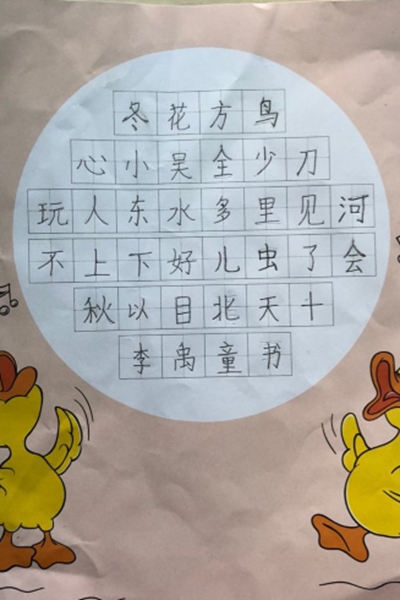 冬花方鸟
心小吴全少刀
玩人东水多里见河
不上下好儿虫了会
秋以目北天十
李禹童书